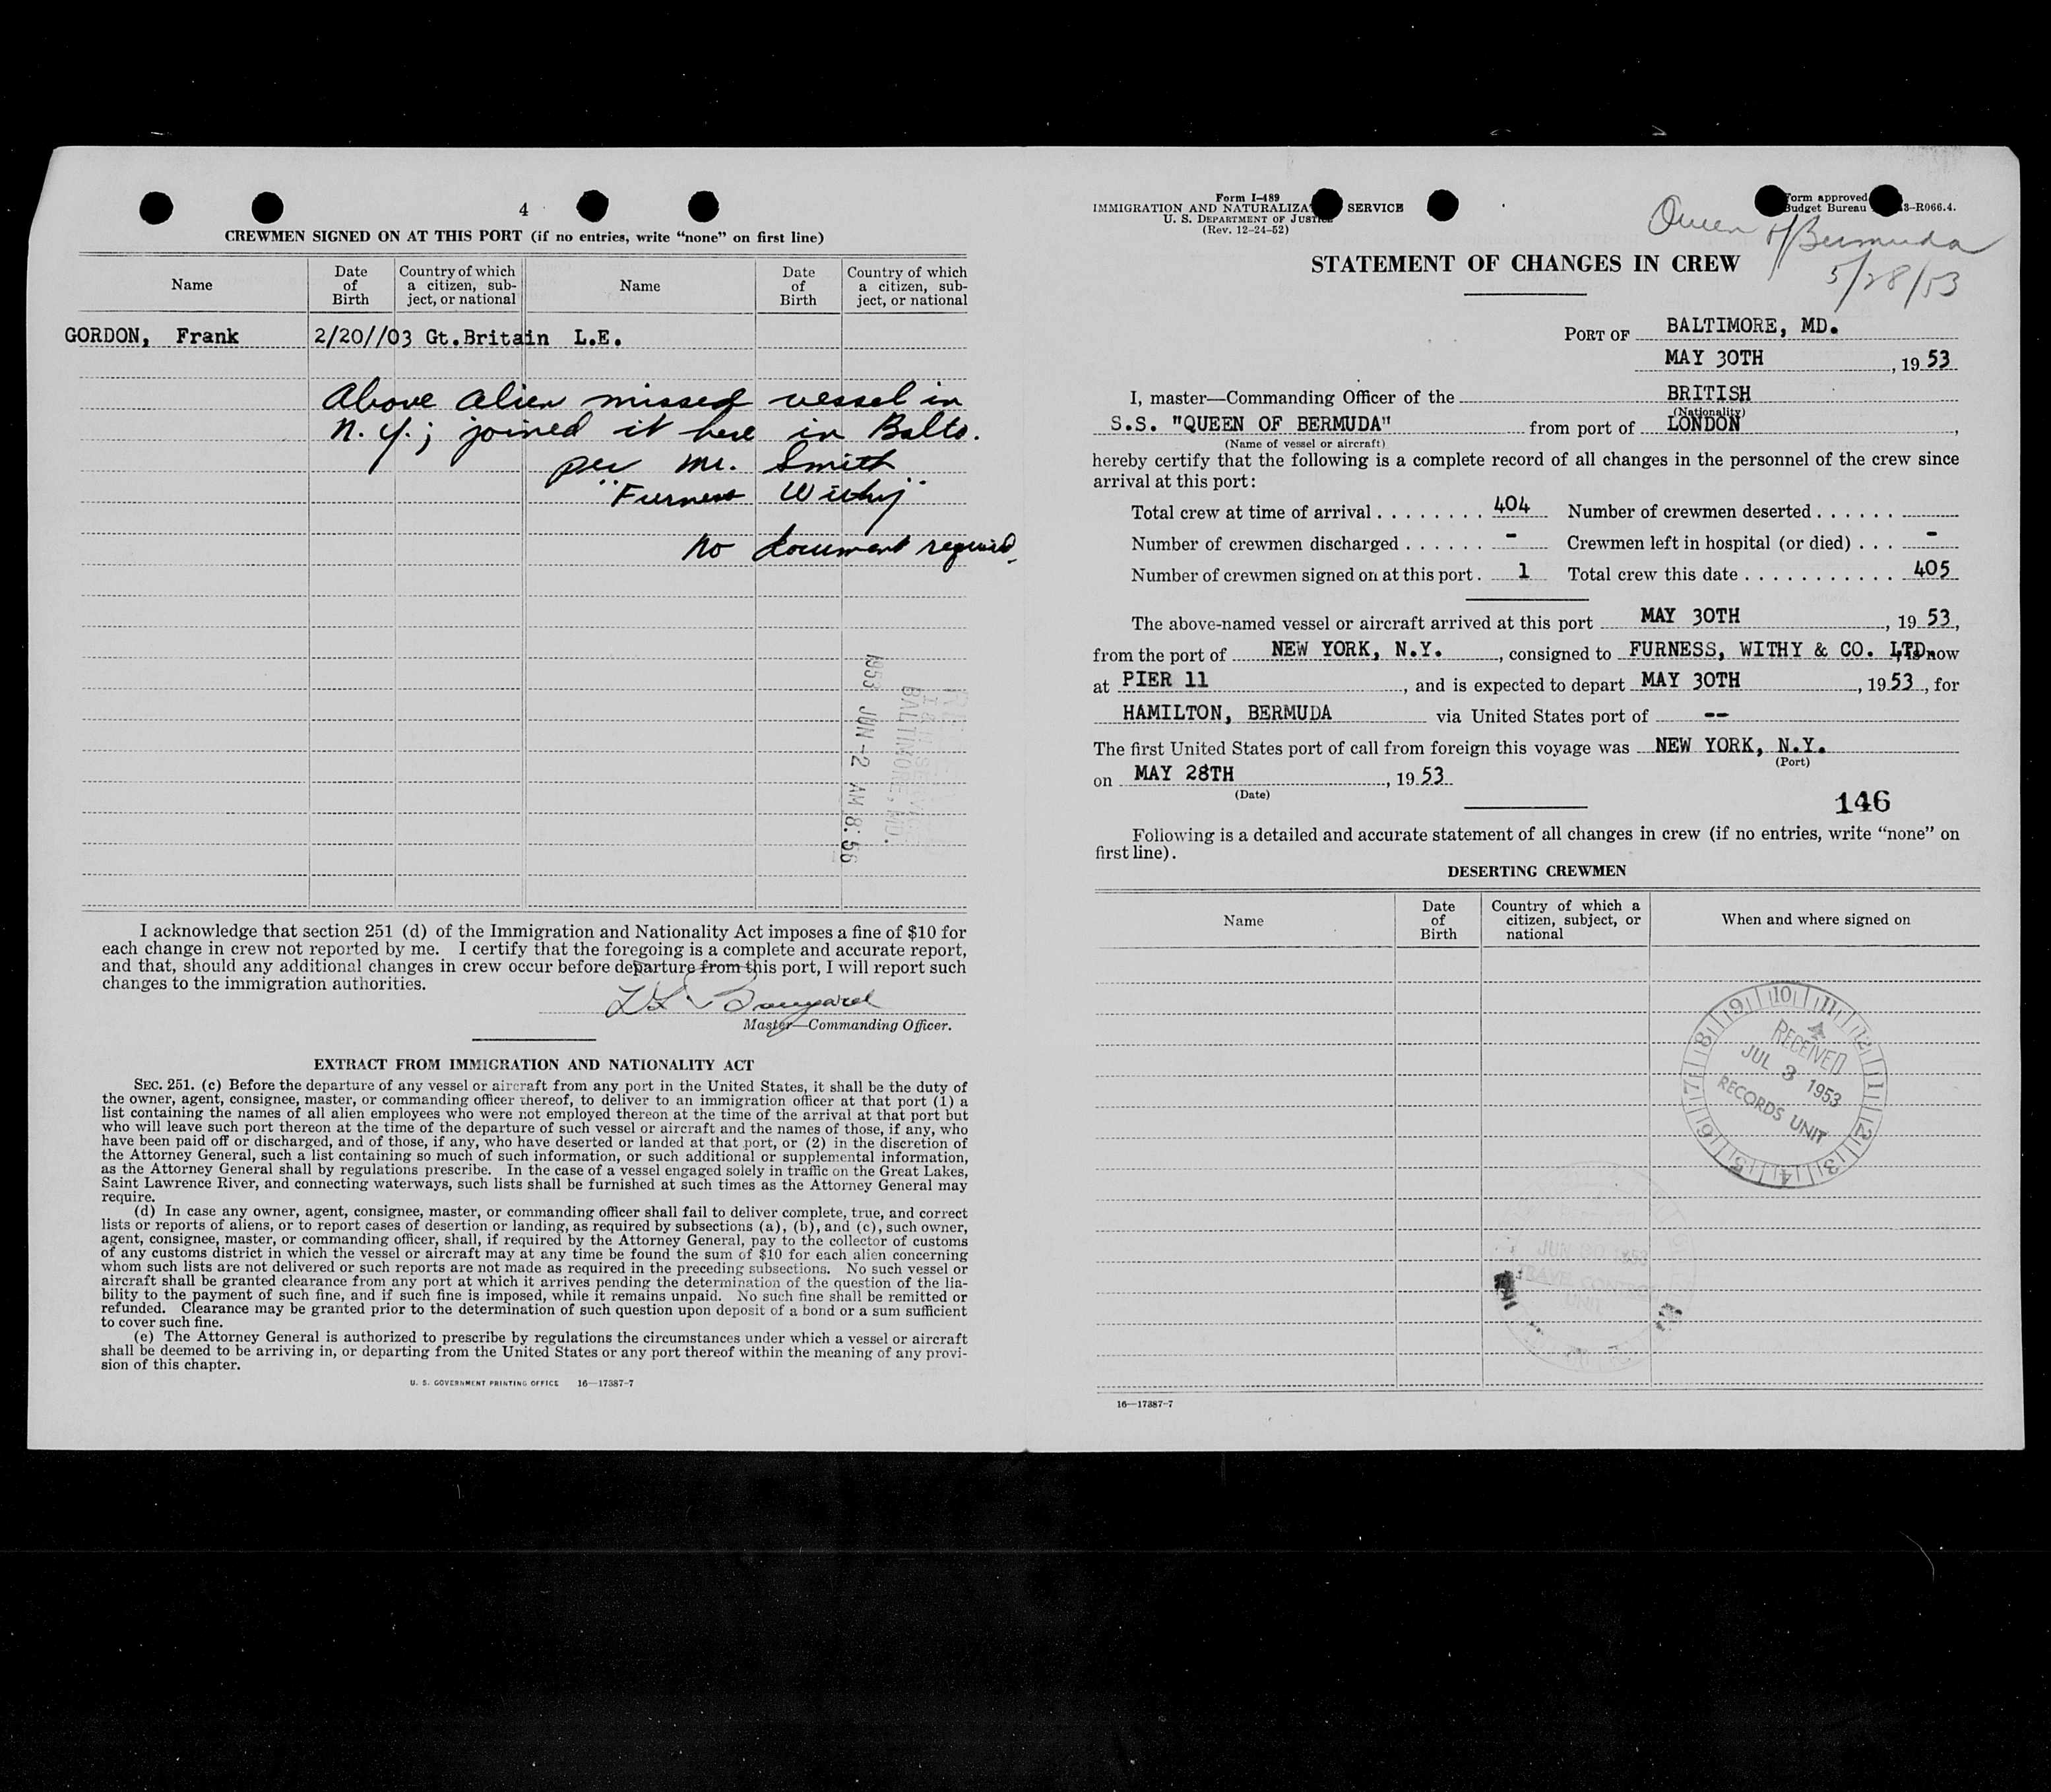 4
CREWMEN SIGNED ON AT THIS PORT (if no entries, write “none” on first line)
Name
Date of Birth
Country of which a citizen, sub-ject, or national
Name
Date of Birth
Country of which a citizen, sub-ject, or national
GORDON, Frank 2/20//03 Gt.Britain L.E.
Above alien missed vessel in
N.Y.; joined it here in Balto.
per Mr. Smith
"Furness Withy"
No document required.
1953 JUN -2 AM 8:56
BALTIMORE, MD.
I acknowledge that section 251 (d) of the Immigration and Nationality Act imposes a fine of $10 for
each change in crew not reported by me. I certify that the foregoing is a complete and accurate report,
and that, should any additional changes in crew occur before departure from this port, I will report such
changes to the immigration authorities.
Master—Commanding Officer.
EXTRACT FROM IMMIGRATION AND NATIONALITY ACT
SEC. 251. (c) Before the departure of any vessel or aircraft from any port in the United States, it shall be the duty of
the owner, agent, consignee, master, or commanding officer thereof, to deliver to an immigration officer at that port (1) a
list containing the names of all alien employees who were not employed thereon at the time of the arrival at that port but
who will leave such port thereon at the time of the departure of such vessel or aircraft and the names of those, if any, who
have been paid off or discharged, and of those, if any, who have deserted or landed at that port, or (2) in the discretion of
the Attorney General, such a list containing so much of such information, or such additional or supplemental information,
as the Attorney General shall by regulations prescribe. In the case of a vessel engaged solely in traffic on the Great Lakes,
Saint Lawrence River, and connecting waterways, such lists shall be furnished at such times as the Attorney General may
require.
(d) In case any owner, agent, consignee, master, or commanding officer shall fail to deliver complete, true, and correct
lists or reports of aliens, or to report cases of desertion or landing, as required by subsections (a), (b), and (c), such owner,
agent, consignee, master, or commanding officer, shall, if required by the Attorney General, pay to the collector of customs
of any customs district in which the vessel or aircraft may at any time be found the sum of $10 for each alien concerning
whom such lists are not delivered or such reports are not made as required in the preceding subsections. No such vessel or
aircraft shall be granted clearance from any port at which it arrives pending the determination of the question of the lia-
bility to the payment of such fine, and if such fine is imposed, while it remains unpaid. No such fine shall be remitted or
refunded. Clearance may be granted prior to the determination of such question upon deposit of a bond or a sum sufficient
to cover such fine.
(e) The Attorney General is authorized to prescribe by regulations the circumstances under which a vessel or aircraft
shall be deemed to be arriving in, or departing from the United States or any port thereof within the meaning of any provi-
sion of this chapter.
U. S. GOVERNMENT PRINTING OFFICE 16—17387-7
Form I-489
IMMIGRATION AND NATURALIZAT SERVICE
U. S. DEPARTMENT OF JUSTICE
(Rev. 12-24-52)
Form approved
Budget Bureau 3-R066.4.
Queen of Bermuda
5/28/53
STATEMENT OF CHANGES IN CREW
PORT OF BALTIMORE, MD.
MAY 30TH, 1953
I, master—Commanding Officer of the BRITISH
(Nationality)
S.S. "QUEEN OF BERMUDA" from port of LONDON,
(Name of vessel or aircraft)
hereby certify that the following is a complete record of all changes in the personnel of the crew since
arrival at this port:
Total crew at time of arrival ........ 404 Number of crewmen deserted ......
Number of crewmen discharged ...... - Crewmen left in hospital (or died) ... -
Number of crewmen signed on at this port. 1 Total crew this date ............ 405
The above-named vessel or aircraft arrived at this port MAY 30TH, 1953,
from the port of NEW YORK, N.Y., consigned to FURNESS, WITHY & CO. LTD, is now
at PIER 11, and is expected to depart MAY 30TH, 1953, for
HAMILTON, BERMUDA via United States port of --
The first United States port of call from foreign this voyage was NEW YORK, N.Y.
(Port)
on MAY 28TH, 1953
(Date)
146
Following is a detailed and accurate statement of all changes in crew (if no entries, write “none” on
first line).
DESERTING CREWMEN
Name
Date of Birth
Country of which a citizen, subject, or national
When and where signed on
RECEIVED
JUL 3 1953
RECORDS UNIT
10 11 12 1 2 3 4 5 6 7 8 9
JUN 30 1953
TRAVEL CONTROL
UNIT
16—17387-7